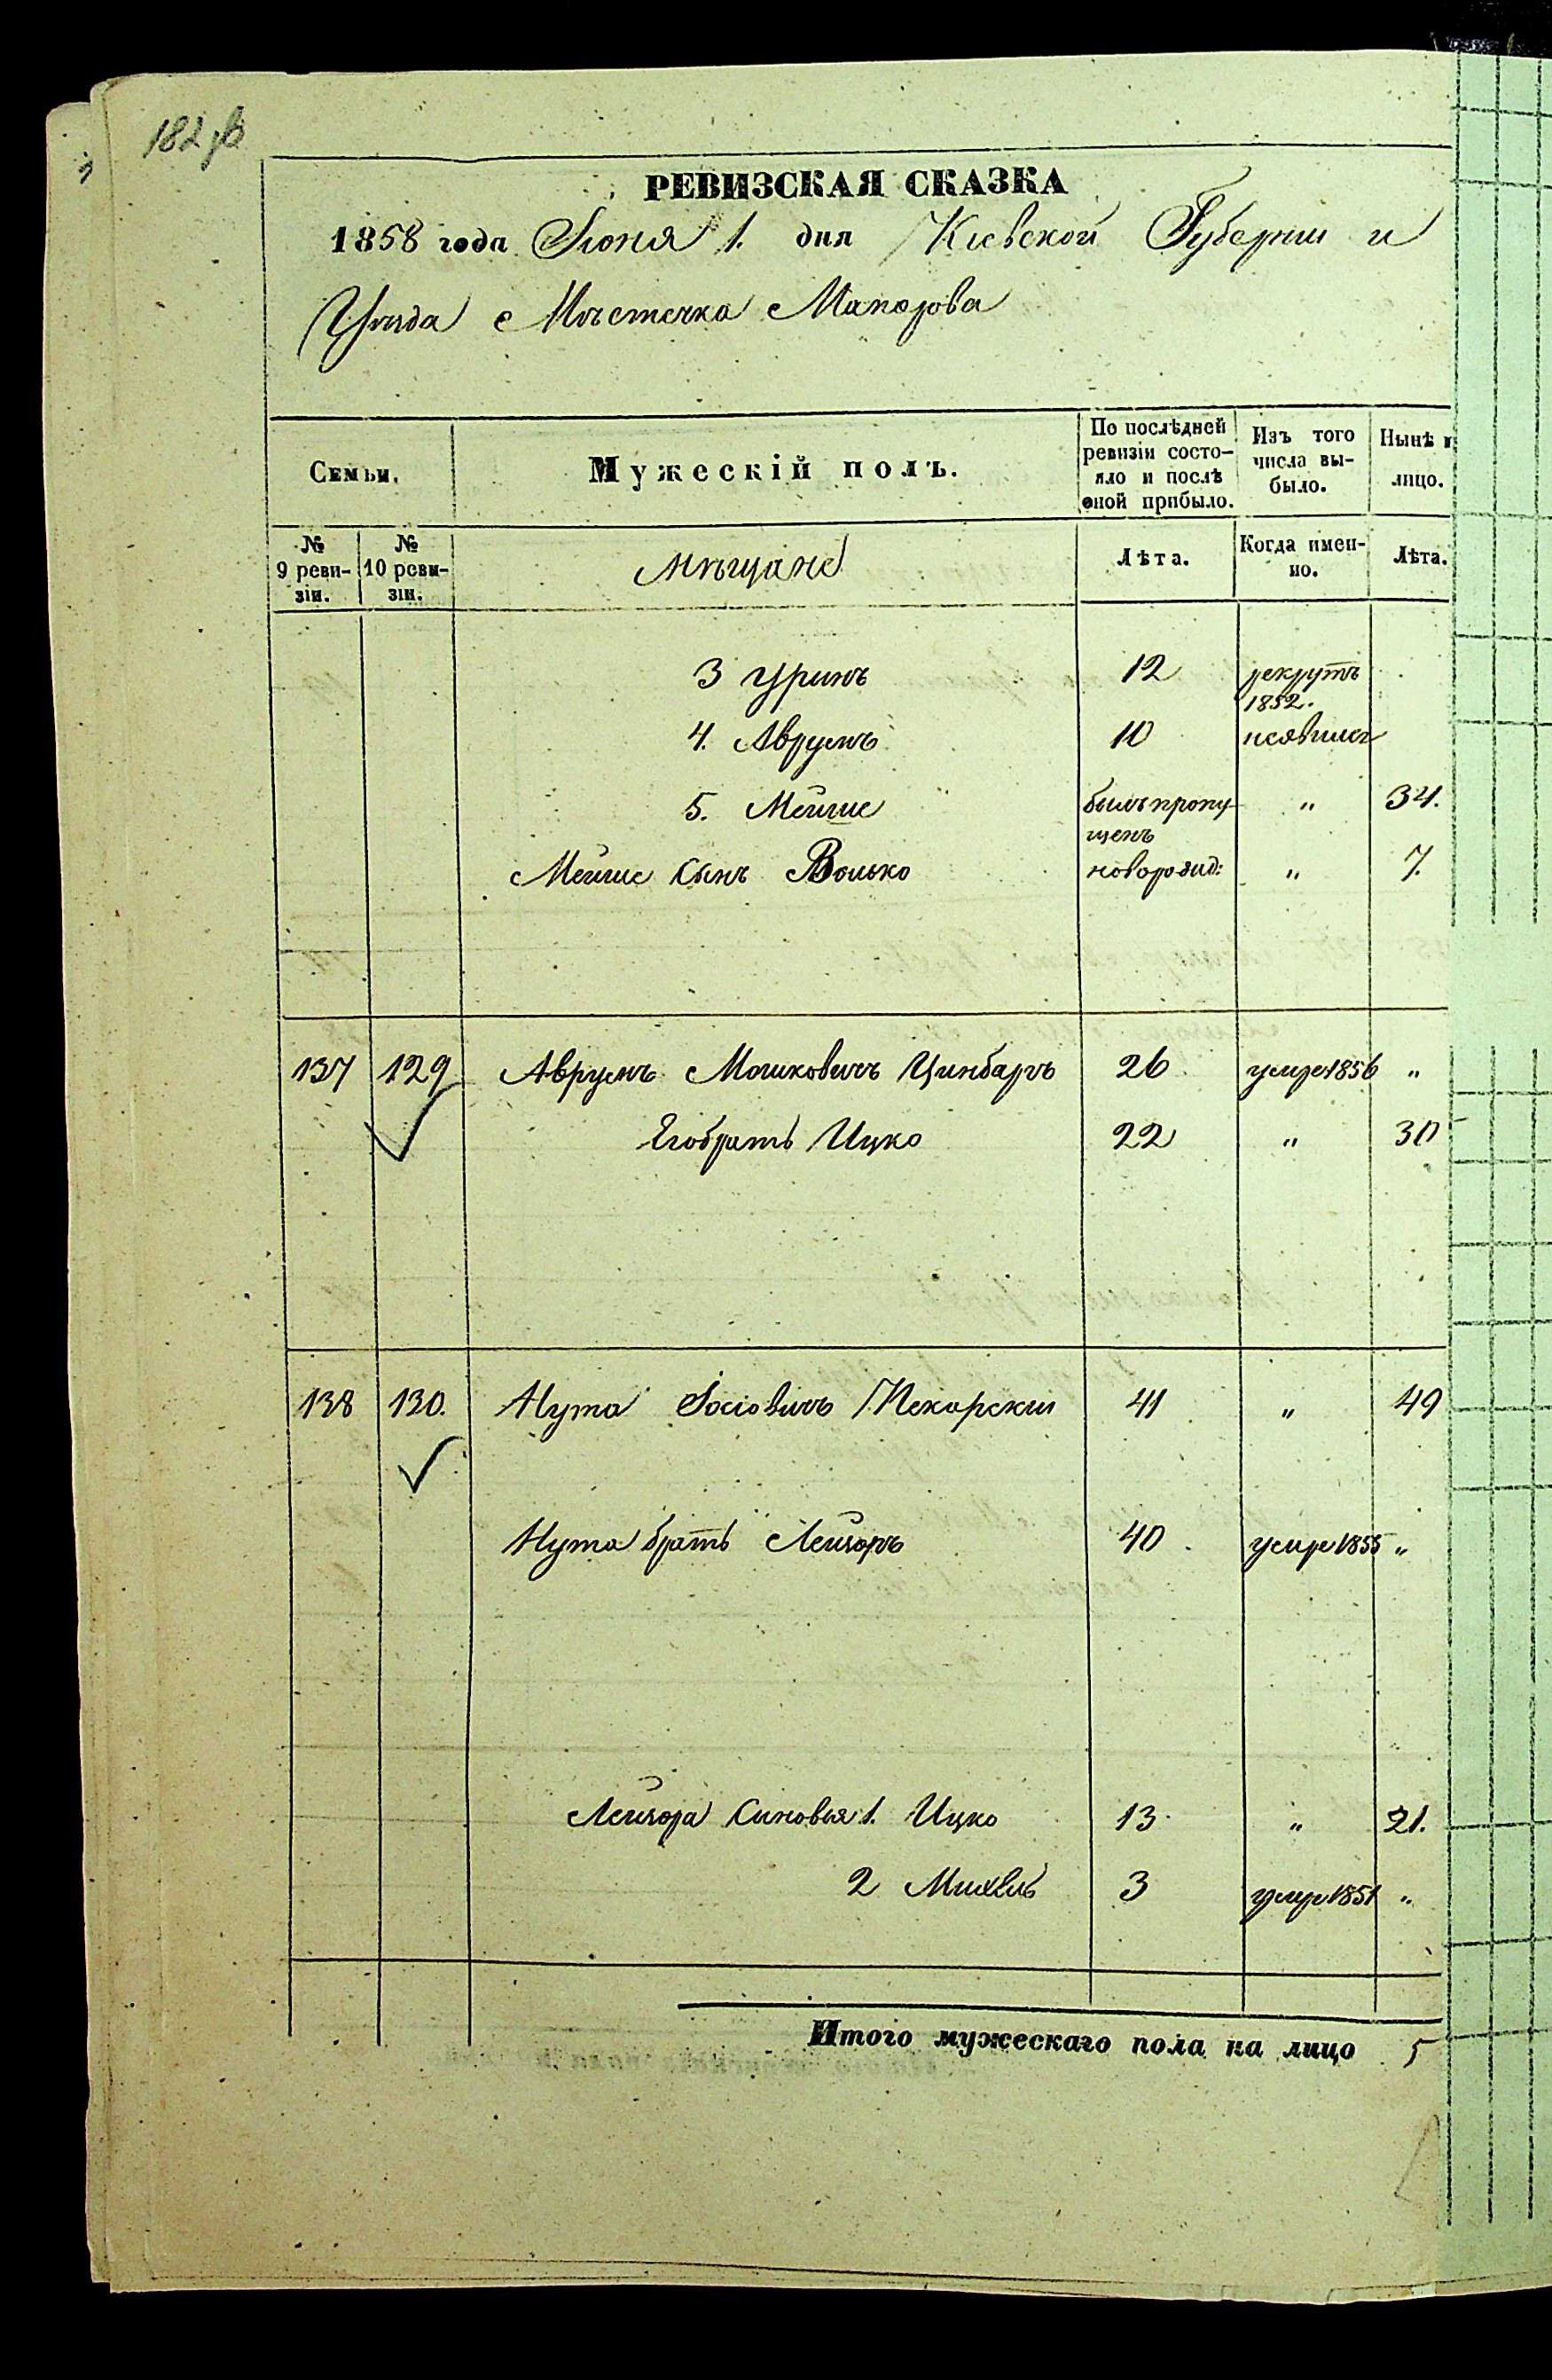 182
РЕВИЗСКАЯ СКАЗКА
1858 года Июня 1. дня Кіевской Губерніи и
Уѣзда Мѣстечка Макарова
Семьи.
Мужескій полъ.
По послѣдней ревизіи состо-
яло и послѣ оной прибыло.
Изъ того числа вы-
было.
Нынѣ
лицо.
№ 9 реви-
зіи.
№ 10 реви-
зіи.
Мѣщане
Лѣта.
Когда имен-
но.
Лѣта.
3 Уринъ 12 рекрутъ
1852.
4. Аврумъ 10 неявился
5. Мейше былъ пропу- " 34.
щенъ
Мейше сынъ Волько новорожд: " 7.
137 129 Аврумъ Мошковичъ Цинбаръ 26 умре 1856 "
Его братъ Ицко 22 " 30
138 130. Нута Іосіовичъ Пекарскии 41 " 49
Нута братъ Лейзоръ 40 умре 1855 "
Лейзора Синовья 1. Ицко 13 " 21.
2 Михель 3 умре 1851 "
Итого мужескаго пола на лицо 5